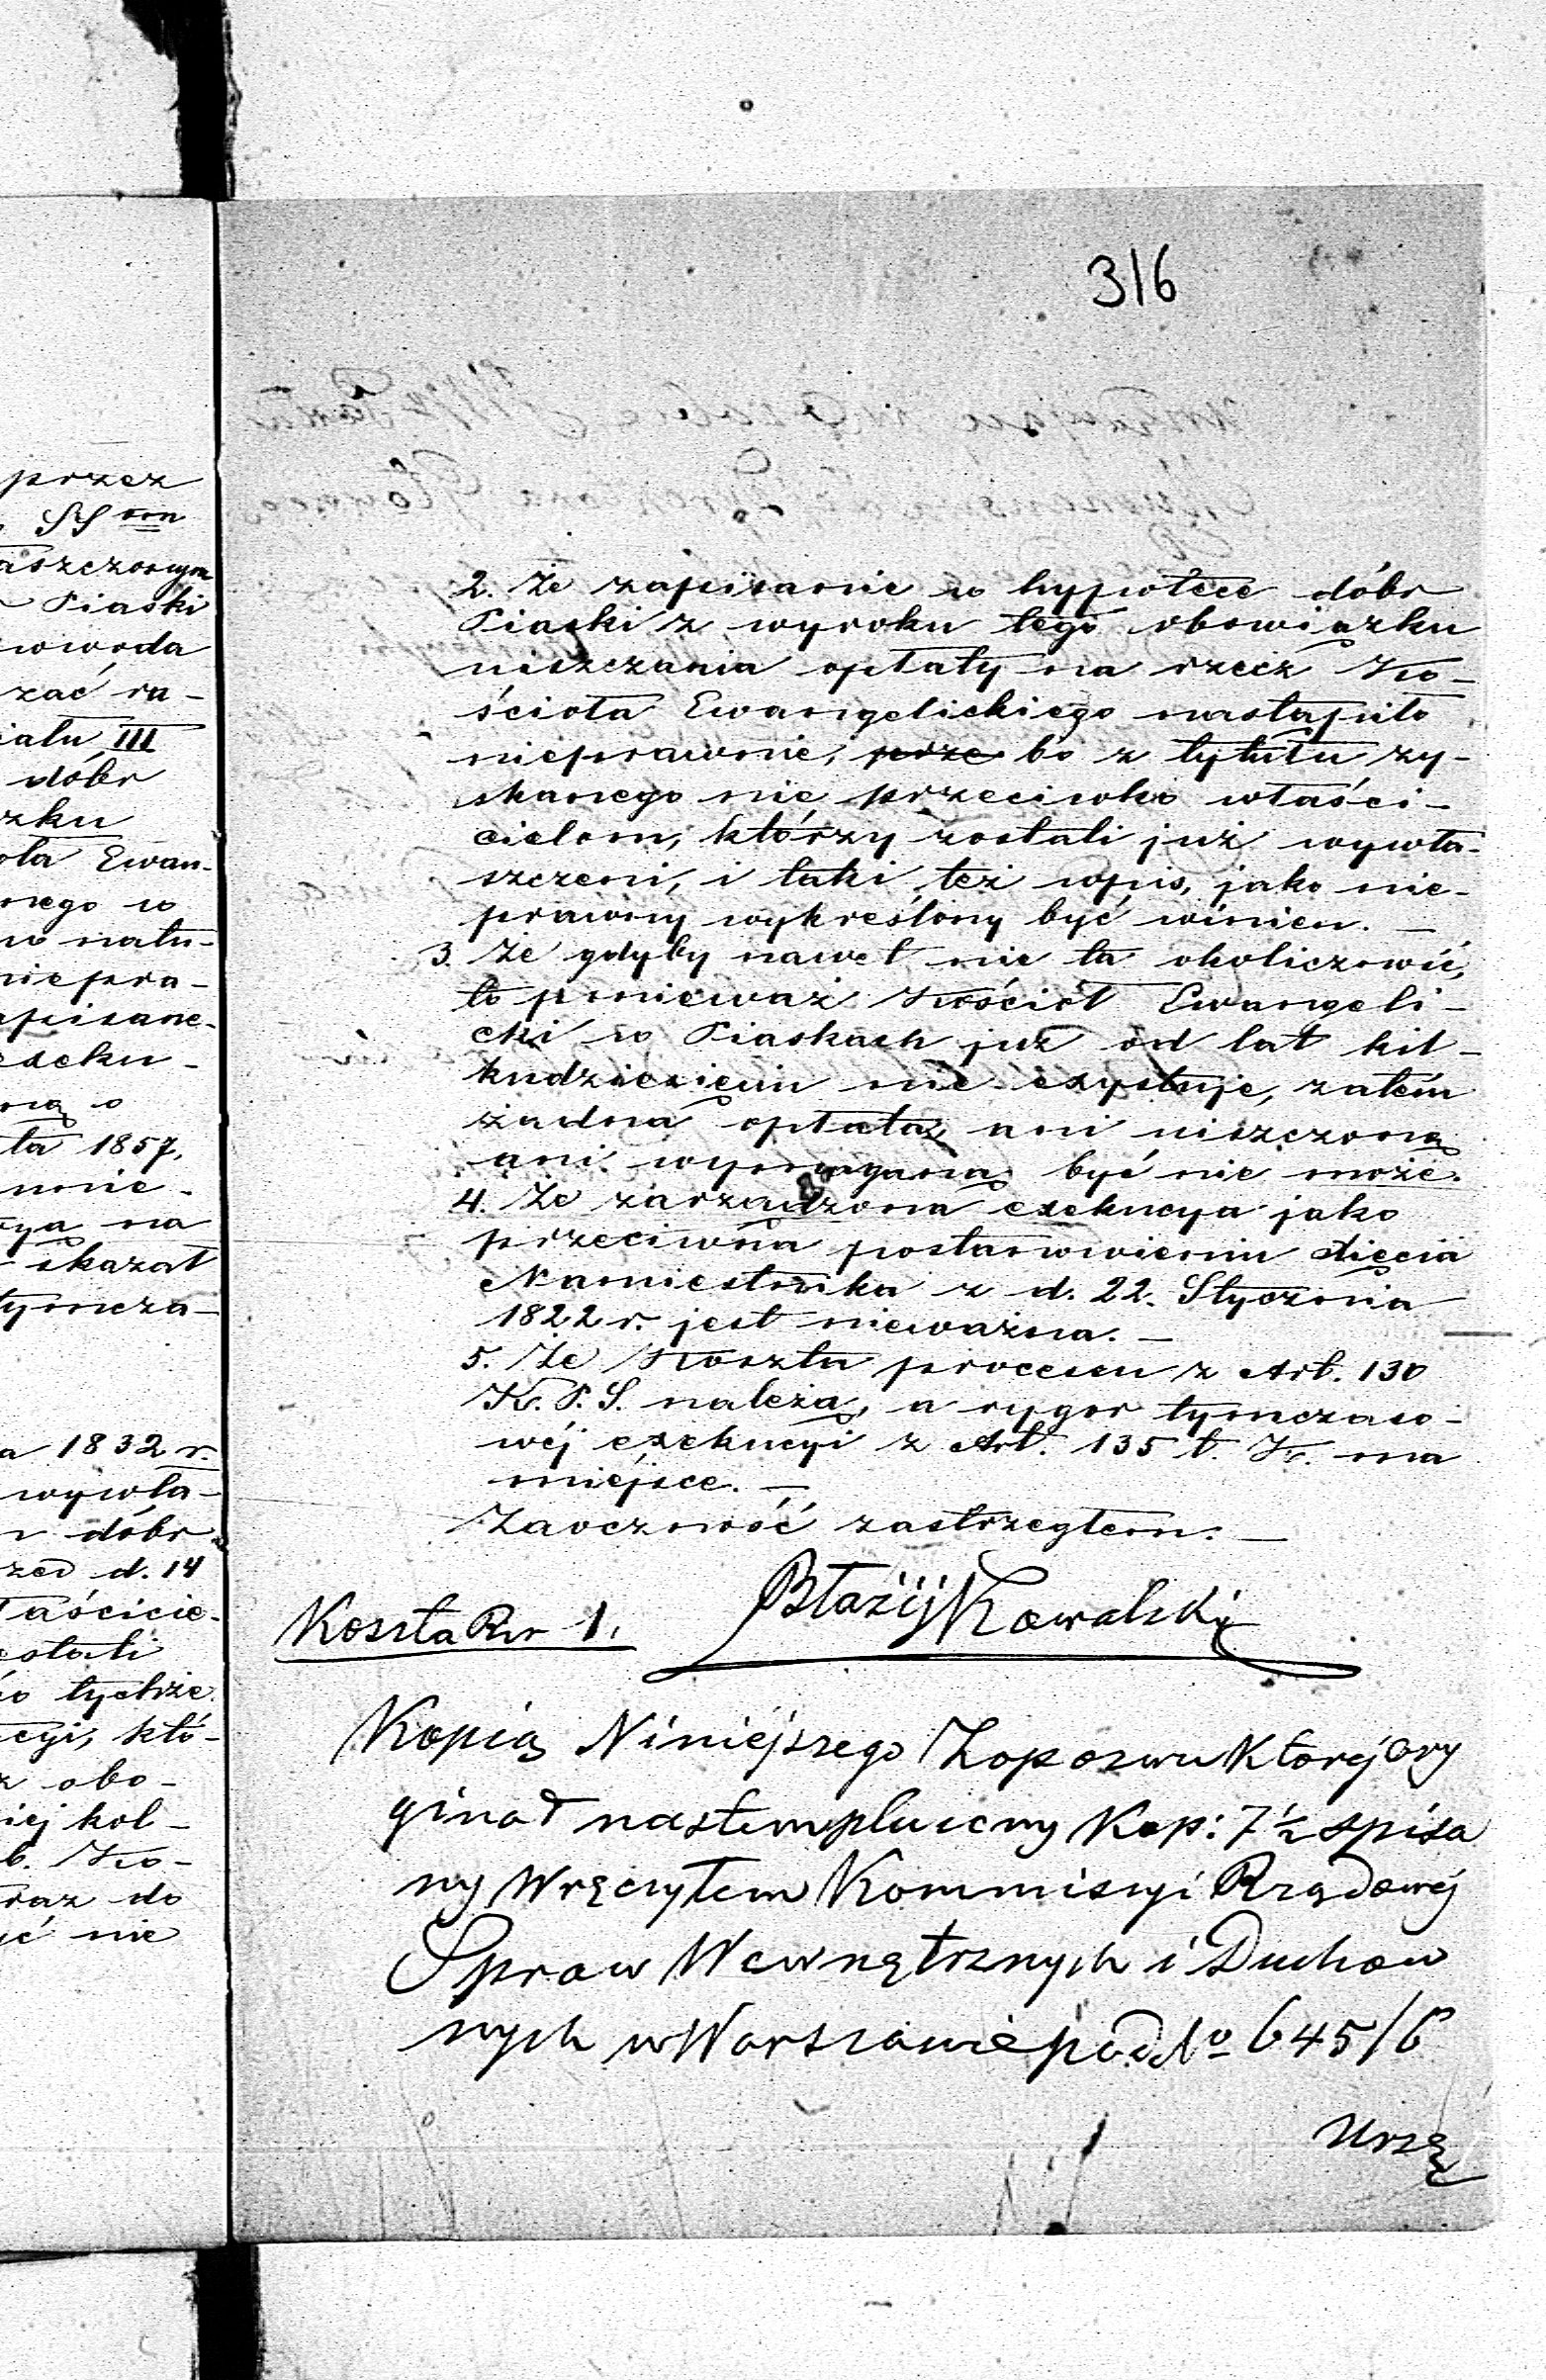 przez
SS ron
aszczonym
Piaski
wwoda
zać ra-
iału III
dóbr
zku
oła Ewan-
nego w
w natu-
niepra-
apisane-
exeku-
ną o
ta 1857,
mnie-
cyą na
skazał
tymcza-
a 1832 r.
wywła-
dóbr
zed d. 14
łaścicie-
estali
o tychże
cyi, któ-
z obo-
iej kol-
b. Ko-
raz do
yć nie
316
2. Że zapisanie w hypotece dóbr
Piaski z wyroku tego obowiązku
uiszczania opłaty na rzecz Ko-
ścioła Ewangelickiego nastąpiło
nieprawnie, prze bo z tytułu zy-
skanego nie przeciwko właści-
cielom, którzy zostali już wywła-
szczeni, i taki też wpis, jako nie-
prawny wykreślony być winien. —
3. Że gdyby nawet nie ta okoliczność,
to ponieważ Kościół Ewangeli-
cki w Piaskach już od lat kil-
kudziesięciu nie exystuje, zatém
żadna opłata ani uiszczoną
ani wymaganą być nie może.
4. Że zarządzona exekucya jako
przeciwna postanowieniu Xięcia
Namiestnika z d. 22. Stycznia
1822 r. jest nieważna. —
5. Że Koszta procesu z Art. 130
K. P. S. należą, a rygor tymczaso-
wéj exekucyi z Art. 135 t. K. ma
miejsce. —
Zaoczność zastrzegłem. —
Błażéj Kowalski
Koszta Rsr 1.
Kopią Niniéjszego Zapozwu Ktoréj ory
ginał na stemplu ceny Kop: 7½ spisa
ny Wręczyłem Kommissyi Rządowéj
Spraw Wewnętrznych i Duchow
nych w Warszawie pod No 645/6
Urzę